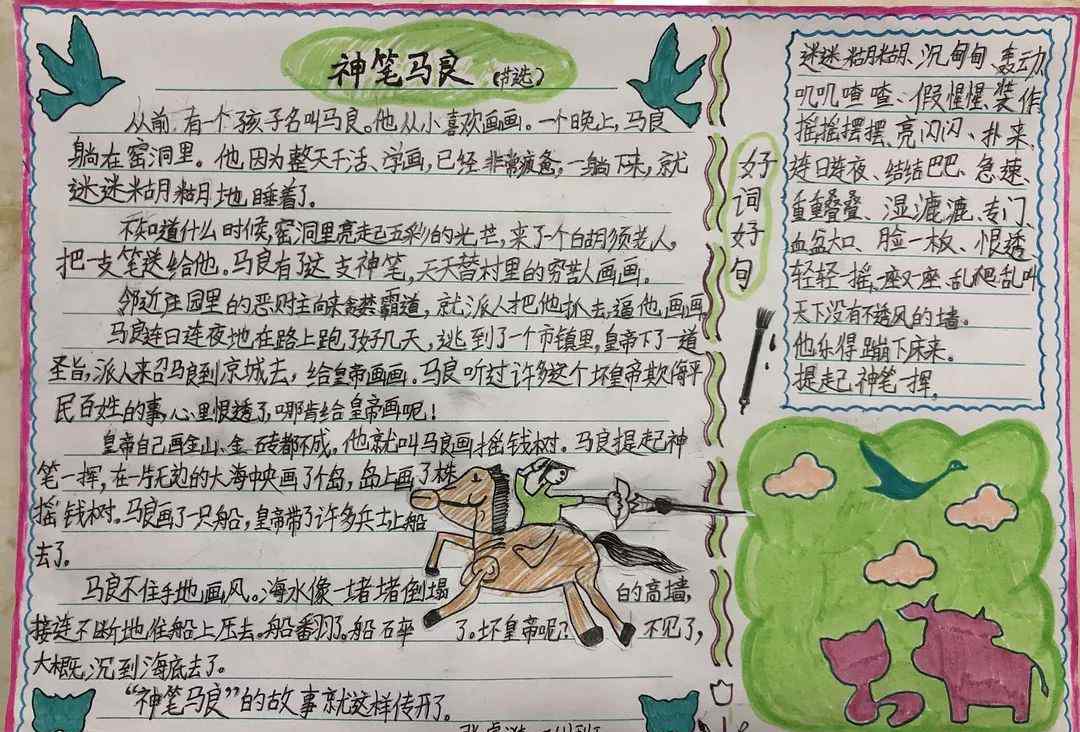 神笔马良（节选）
从前,有一个孩子名叫马良。他从小喜欢画画。一个晚上,马良
躺在窑洞里。他因为整天干活、学画,已经非常疲惫,一躺下来,就
迷迷糊糊地睡着了。
不知道什么时候,窑洞里亮起五彩的光芒,来了个白胡须老人,
把一支笔送给他。马良有了这支神笔,天天替村里的穷苦人画画。
邻近庄园里的恶财主向来贪婪霸道,就派人把他抓去,逼他画画,
马良连日连夜地在路上跑了好几天,逃到了一个市镇里,皇帝下了一道
圣旨,派人来召马良到京城去,给皇帝画画。马良听过许多这个坏皇帝欺侮平
民百姓的事,心里恨透了,哪肯给皇帝画呢!
皇帝自己画金山、金砖都不成。他就叫马良画摇钱树。马良提起神
笔一挥,在一片无边的大海中央画了个岛,岛上画了株
摇钱树。马良画了一只船,皇帝带了许多兵士上船
去了。
马良不住手地画风。海水像一堵堵倒塌的高墙,
接连不断地往船上压去。船翻了。船碎了。坏皇帝呢?不见了,
大概沉到海底去了。
“神笔马良”的故事就这样传开了。
好词好句
迷迷糊糊、沉甸甸、轰动、
叽叽喳喳、假惺惺、装作
摇摇摆摆、亮闪闪、扑来、
连日连夜、结结巴巴、急速、
重重叠叠、湿漉漉、专门、
血盆大口、脸一板、恨透
轻轻一摇、一座又一座、乱爬乱叫
天下没有不透风的墙。
他乐得蹦下床来。
提起神笔一挥。